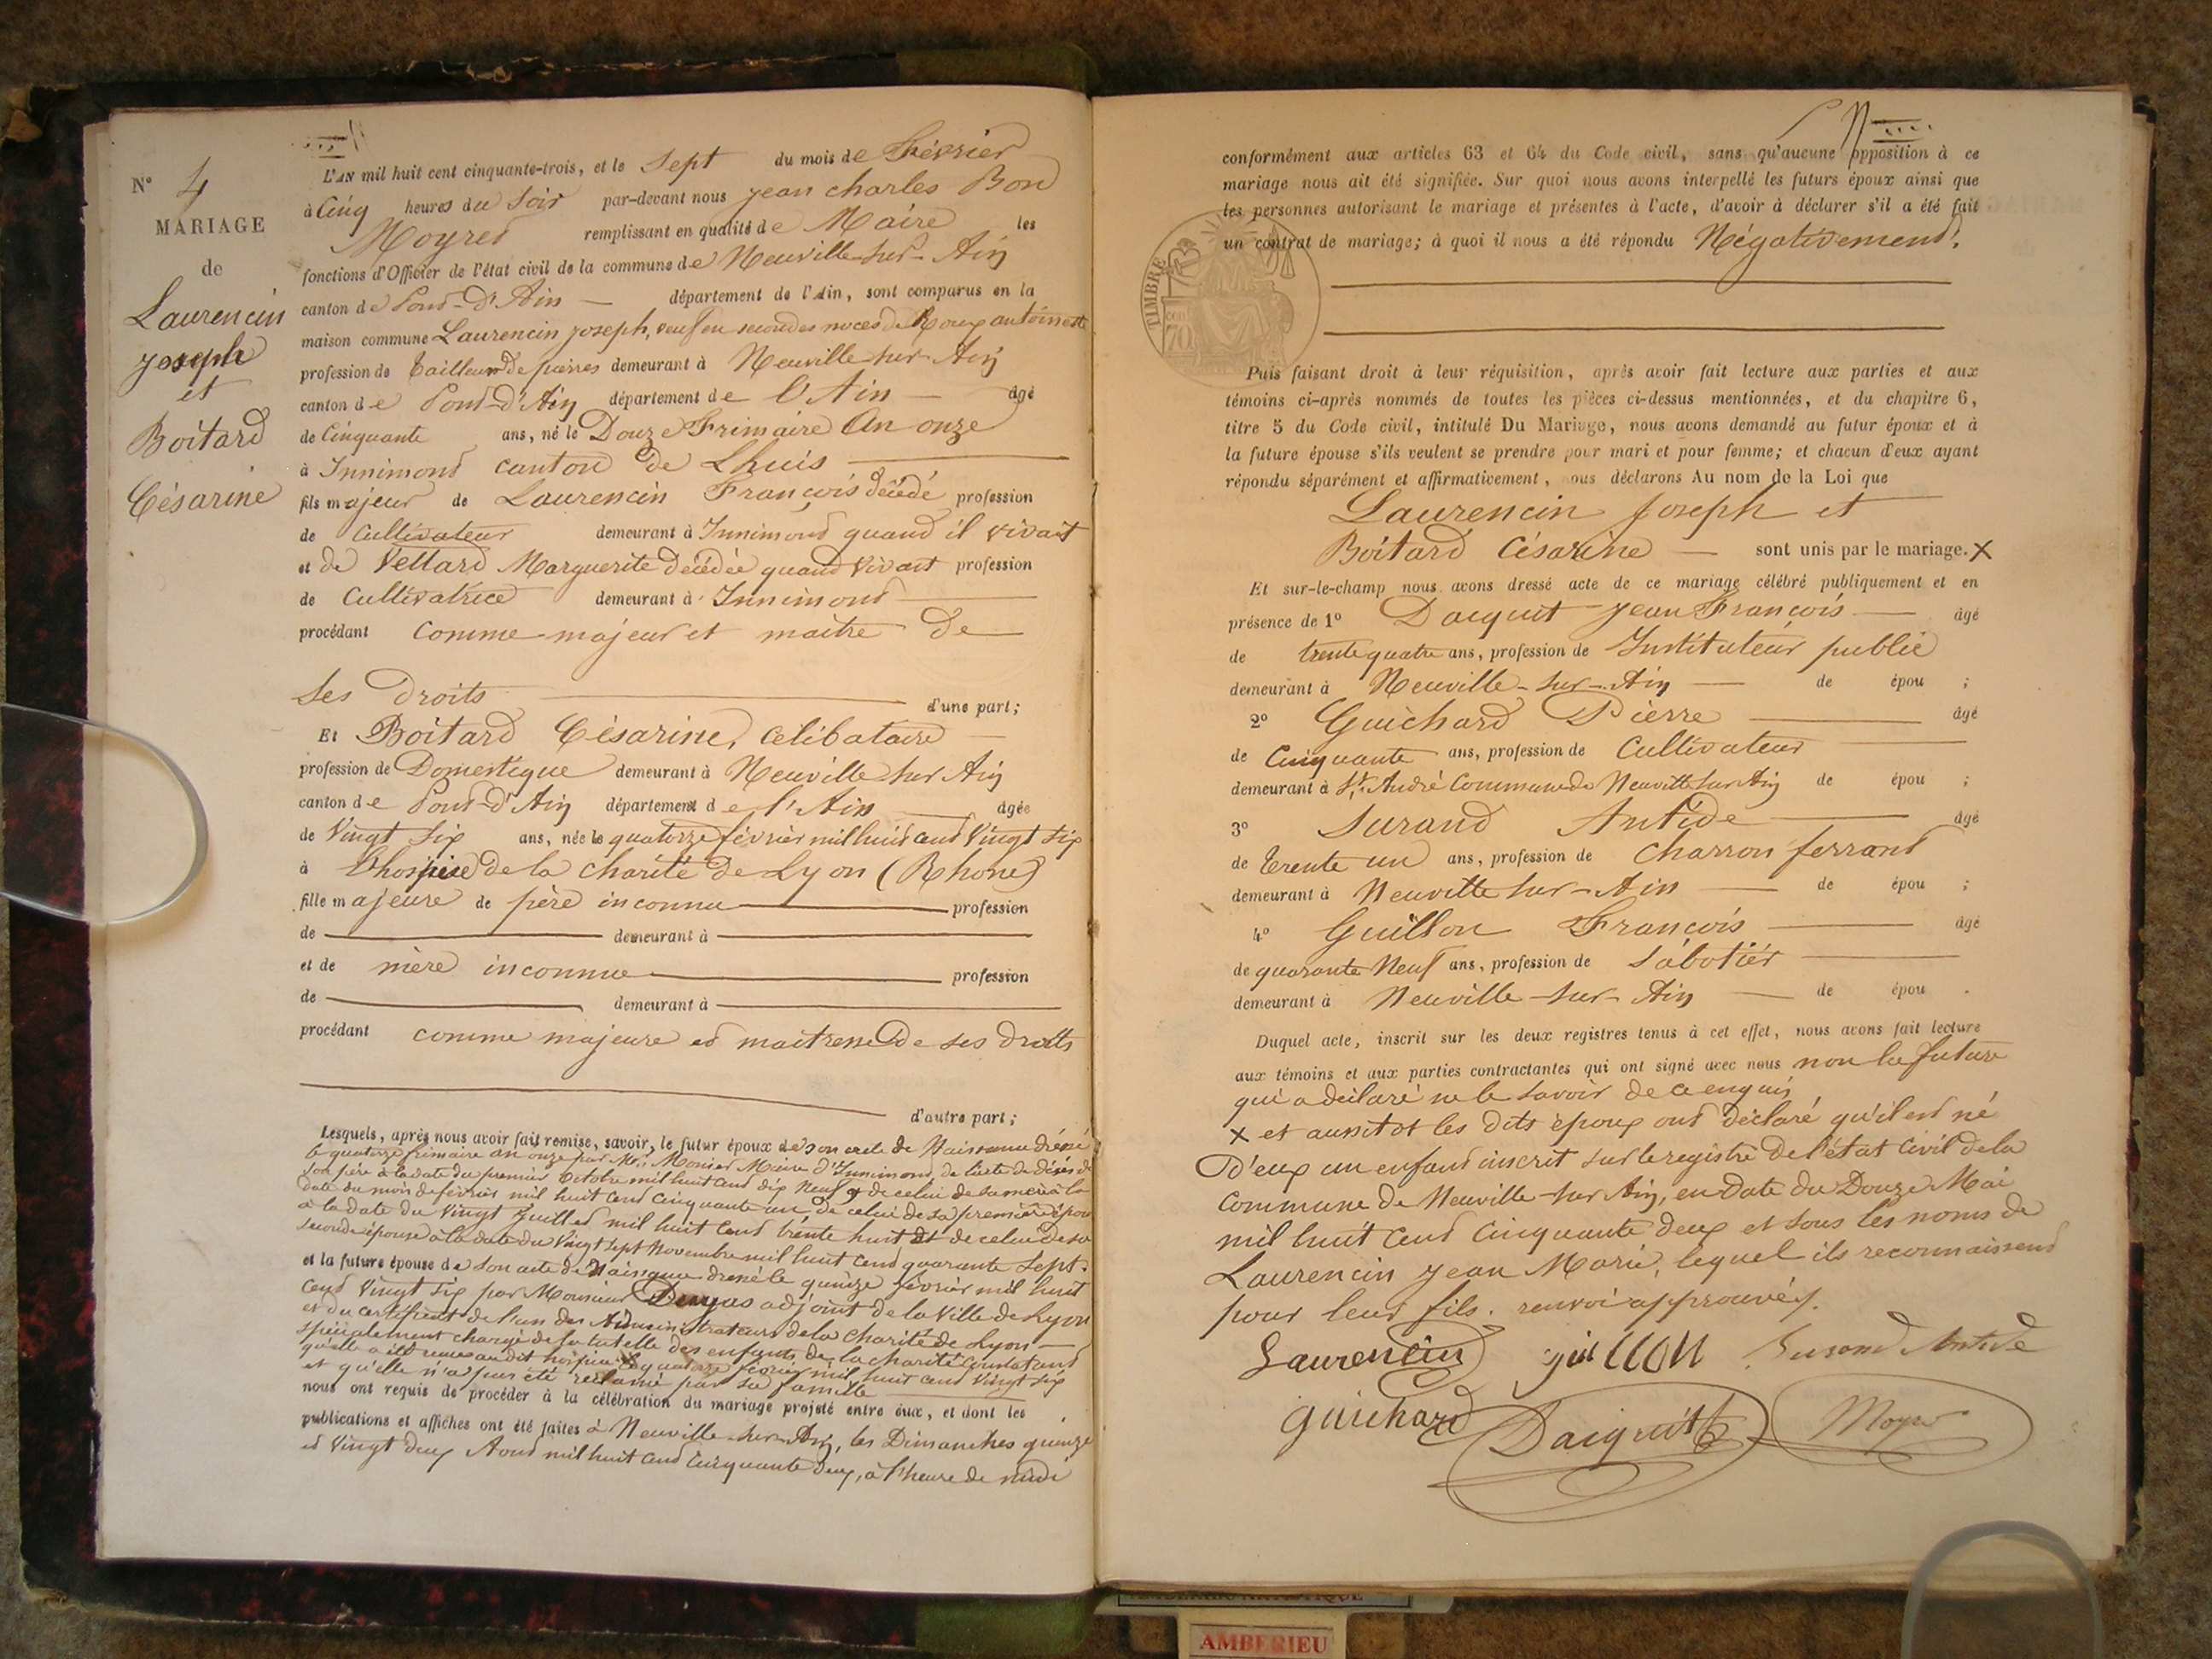 N° 4
MARIAGE
de
Laurencin
joseph
et
Boitard
Césarine
L'AN mil huit cent cinquante-trois, et le Sept du mois de Février
à Cinq heures du Soir par-devant nous jean charles Bon
Moyret remplissant en qualité de Maire les
fonctions d'Officier de l'état civil de la commune de Neuville-sur-Ain
canton de Pont-d'Ain département de l'Ain, sont comparus en la
maison commune Laurencin joseph, veuf en secondes noces de Roux antoinette
profession de tailleur de pierres demeurant à Neuville-sur Ain
canton de Pont-d'Ain département de l'Ain âgé
de Cinquante ans, né le Douze Frimaire An onze
à Innimond canton de Lhuis
fils majeur de Laurencin François décédé profession
de Cultivateur demeurant à Innimond quand il vivait
et de Vellard Marguerite décédée quand vivait profession
de Cultivatrice demeurant à Innimond
procédant comme majeur et maitre de
ses Droits d'une part;
Et Boitard Césarine, célibataire
profession de Domestique demeurant à Neuville sur Ain
canton de Pont-d'Ain département de l'Ain âgée
de Vingt six ans, née le quatorze février mil huit cent Vingt six
à L'hospice de la charité de Lyon (Rhone)
fille majeure de père inconnu profession
de demeurant à
et de mère inconnue profession
de demeurant à
procédant comme majeure et maitresse de ses droits
d'autre part;
Lesquels, après nous avoir fait remise, savoir, le futur époux de son acte de Naissance dressé
le quatorze frimaire an onze par Mr. Monier Maire d'Innimond, de l'acte de décès de
son père à la date du premier Octobre mil huit cent dix Neuf et de celui de sa mère à la
date du mois de février mil huit cent cinquante un, de celui de sa première épouse
à la date du Vingt Juillet mil huit cent trente huit et de celui de sa
seconde épouse à la date du Vingt Sept Novembre mil huit cent quarante Sept.
et la future épouse de son acte de Naissance dressé le quinze février mil huit
cent Vingt six par Monsieur adjoint de la Ville de Lyon
et du certificat de l'un des Administrateurs de la charité de Lyon
spécialement chargé de la tutelle des enfants de la charité constatant
qu'elle a été remise au dit hospice le quatorze février mil huit cent Vingt six
et qu'elle n'a pas été réclamée par sa famille
nous ont requis de procéder à la célébration du mariage projeté entre eux, et dont les
publications et affiches ont été faites à Neuville-sur-Ain, les Dimanches quinze
et Vingt deux Aout mil huit cent Cinquante deux, à l'heure de midi
conformément aux articles 63 et 64 du Code civil, sans qu'aucune opposition à ce
mariage nous ait été signifiée. Sur quoi nous avons interpellé les futurs époux ainsi que
les personnes autorisant le mariage et présentes à l'acte, d'avoir à déclarer s'il a été fait
un contrat de mariage; à quoi il nous a été répondu Négativement.
TIMBRE
70
Puis faisant droit à leur réquisition, après avoir fait lecture aux parties et aux
témoins ci-après nommés de toutes les pièces ci-dessus mentionnées, et du chapitre 6,
titre 5 du Code civil, intitulé Du Mariage, nous avons demandé au futur époux et à
la future épouse s'ils veulent se prendre pour mari et pour femme; et chacun d'eux ayant
répondu séparément et affirmativement, nous déclarons Au nom de la Loi que
Laurencin joseph et
Boitard Césarine sont unis par le mariage. X
Et sur-le-champ nous avons dressé acte de ce mariage célébré publiquement et en
présence de 1° Daiguit jean François âgé
de trente quatre ans, profession de Instituteur public
demeurant à Neuville-sur-Ain de épou ;
2° Guichard Pierre âgé
de Cinquante ans, profession de Cultivateur
demeurant à St. André Commune de Neuville sur Ain de épou ;
3° Surand Antide âgé
de trente un ans, profession de charron ferrant
demeurant à Neuville sur-Ain de épou ;
4° Guillon François âgé
de quarante Neuf ans, profession de Sabotier
demeurant à Neuville-sur-Ain de épou .
Duquel acte, inscrit sur les deux registres tenus à cet effet, nous avons fait lecture
aux témoins et aux parties contractantes qui ont signé avec nous non la future
qui a déclaré ne le savoir de ce enquis
X et aussitot les dits époux ont déclaré qu'il est né
D'eux un enfant inscrit sur le registre de l'état civil de la
Commune de Neuville-sur Ain, en date du Douze Mai
mil huit cent Cinquante deux et sous les noms de
Laurencin jean Marie, lequel ils reconnaissent
pour leur fils. renvoi approuvé.
Laurencin guillon Surand Antide
guichard Daiguit Moyret
AMBERIEU